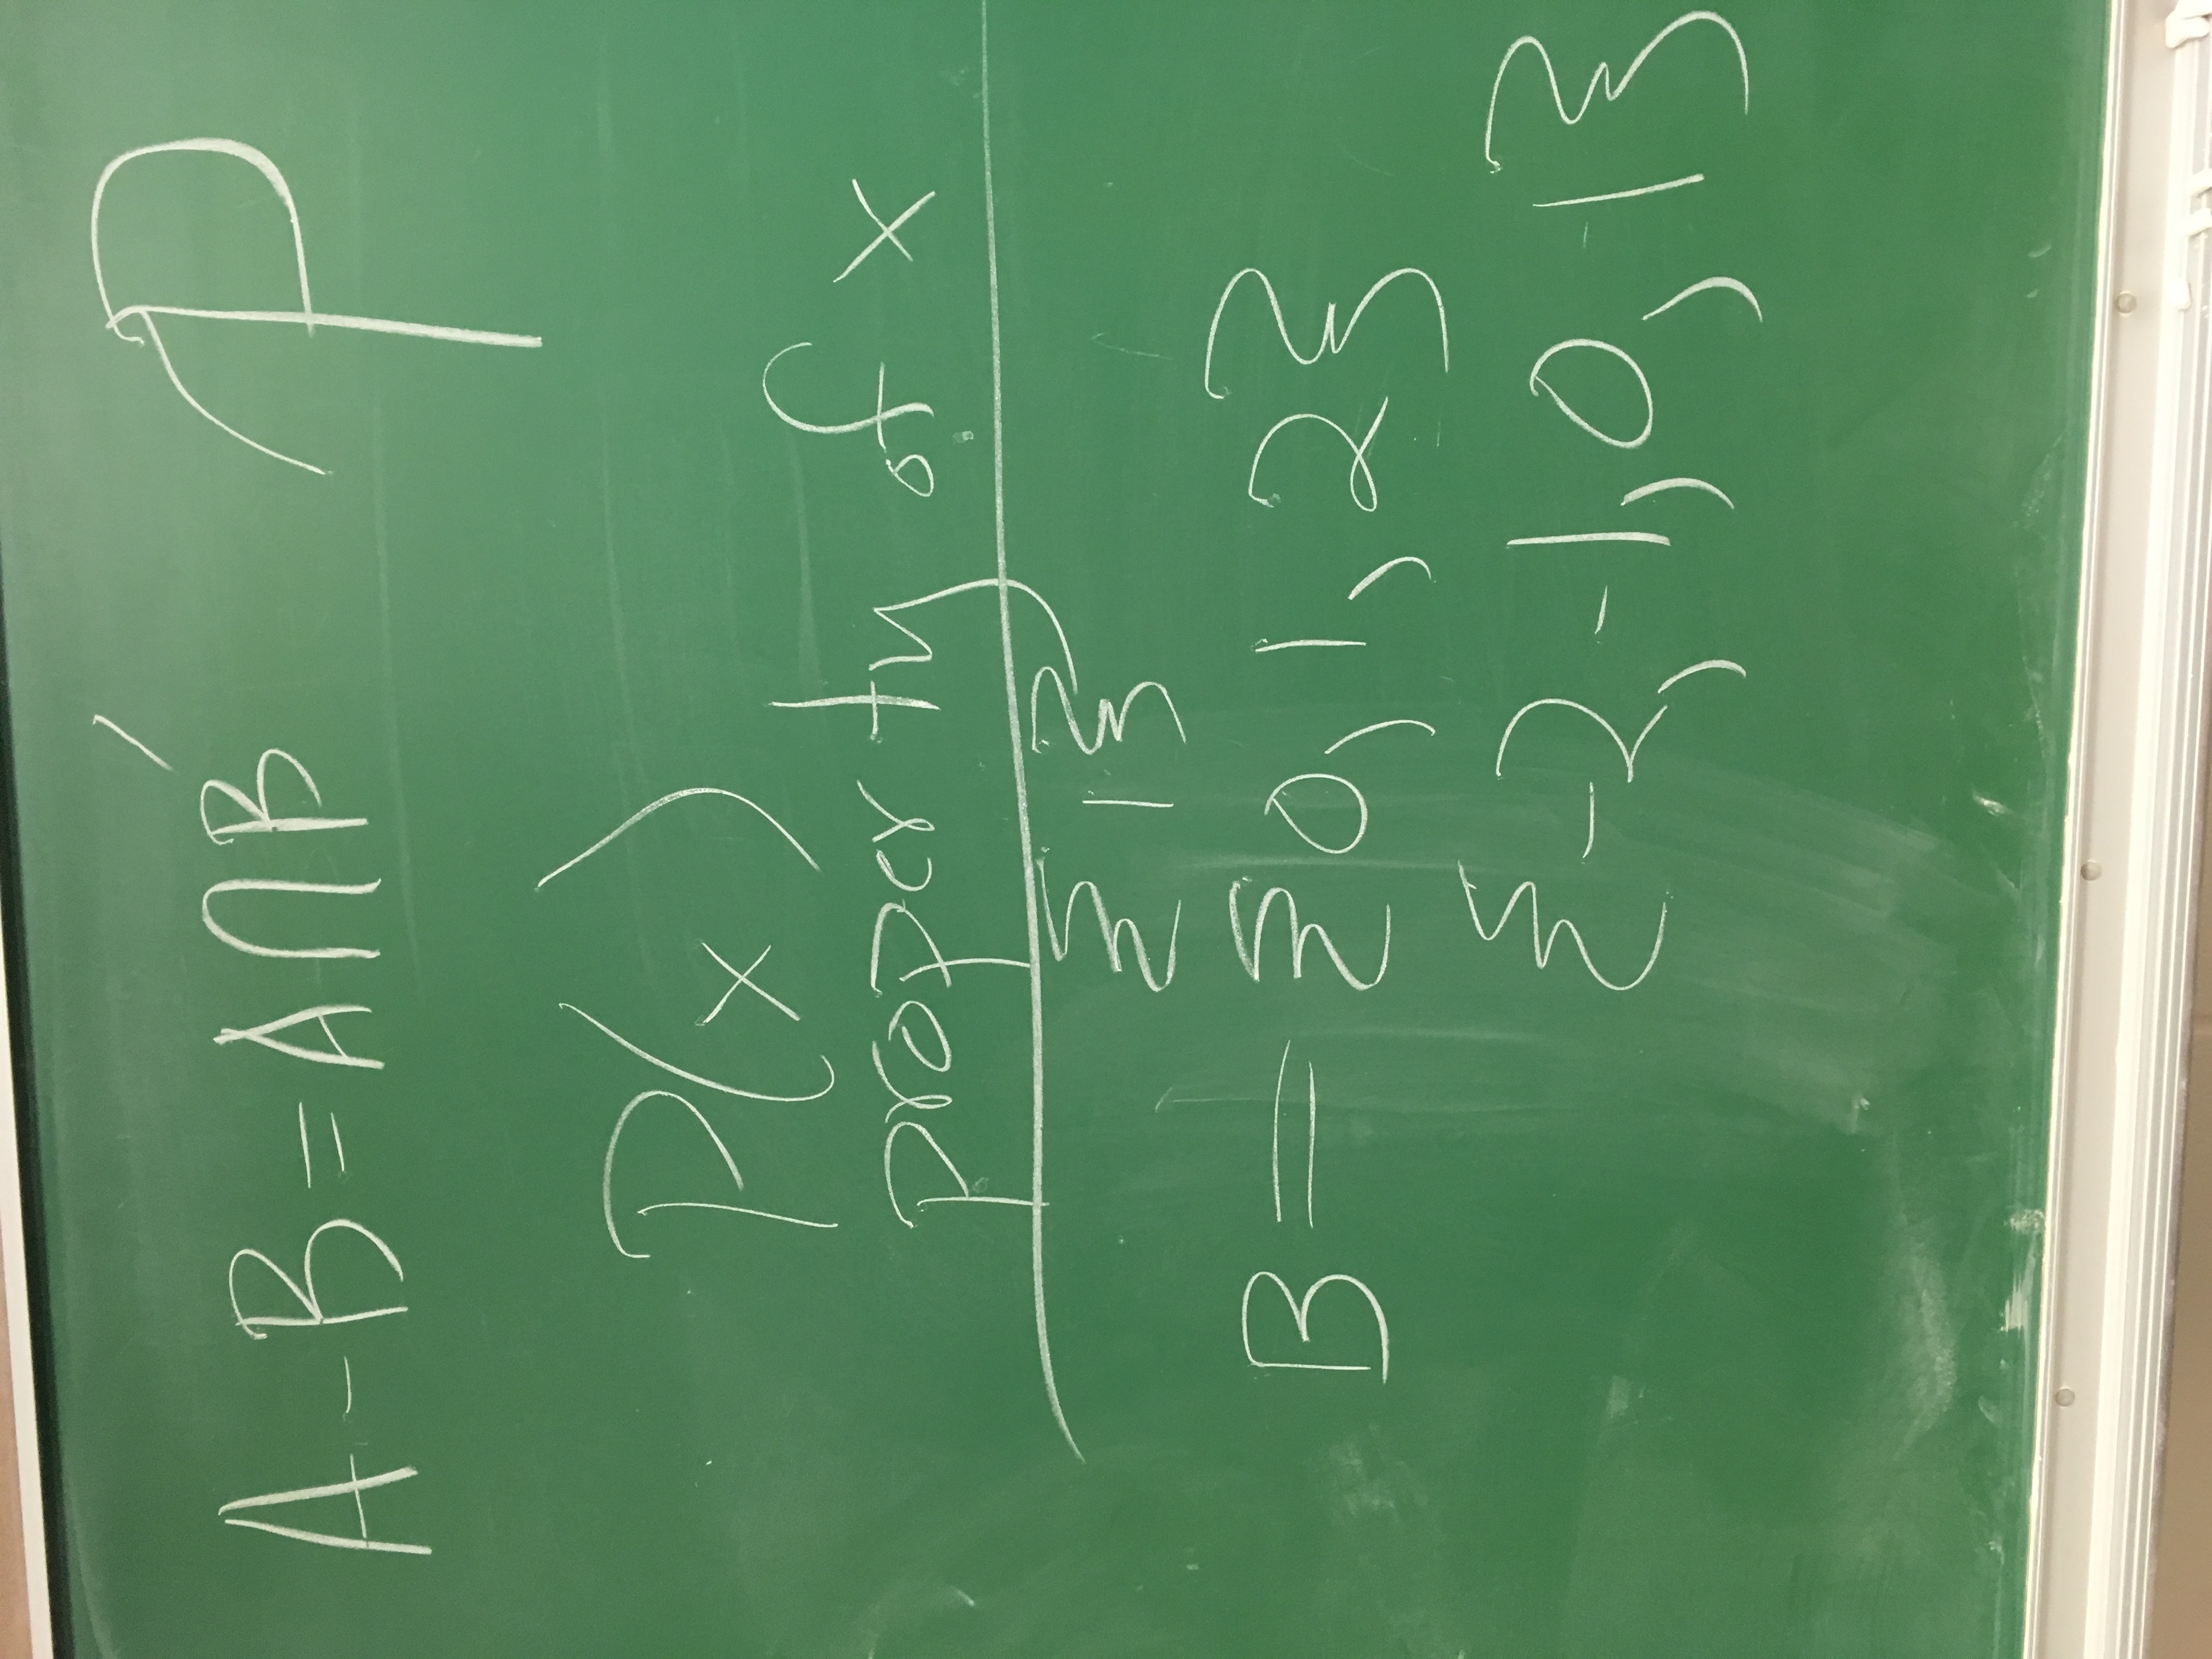 A - B = A ∩ B' P
P(x)
property of x
{1}
B = {0, 1, 2}
{-2, -1, 0, 1}